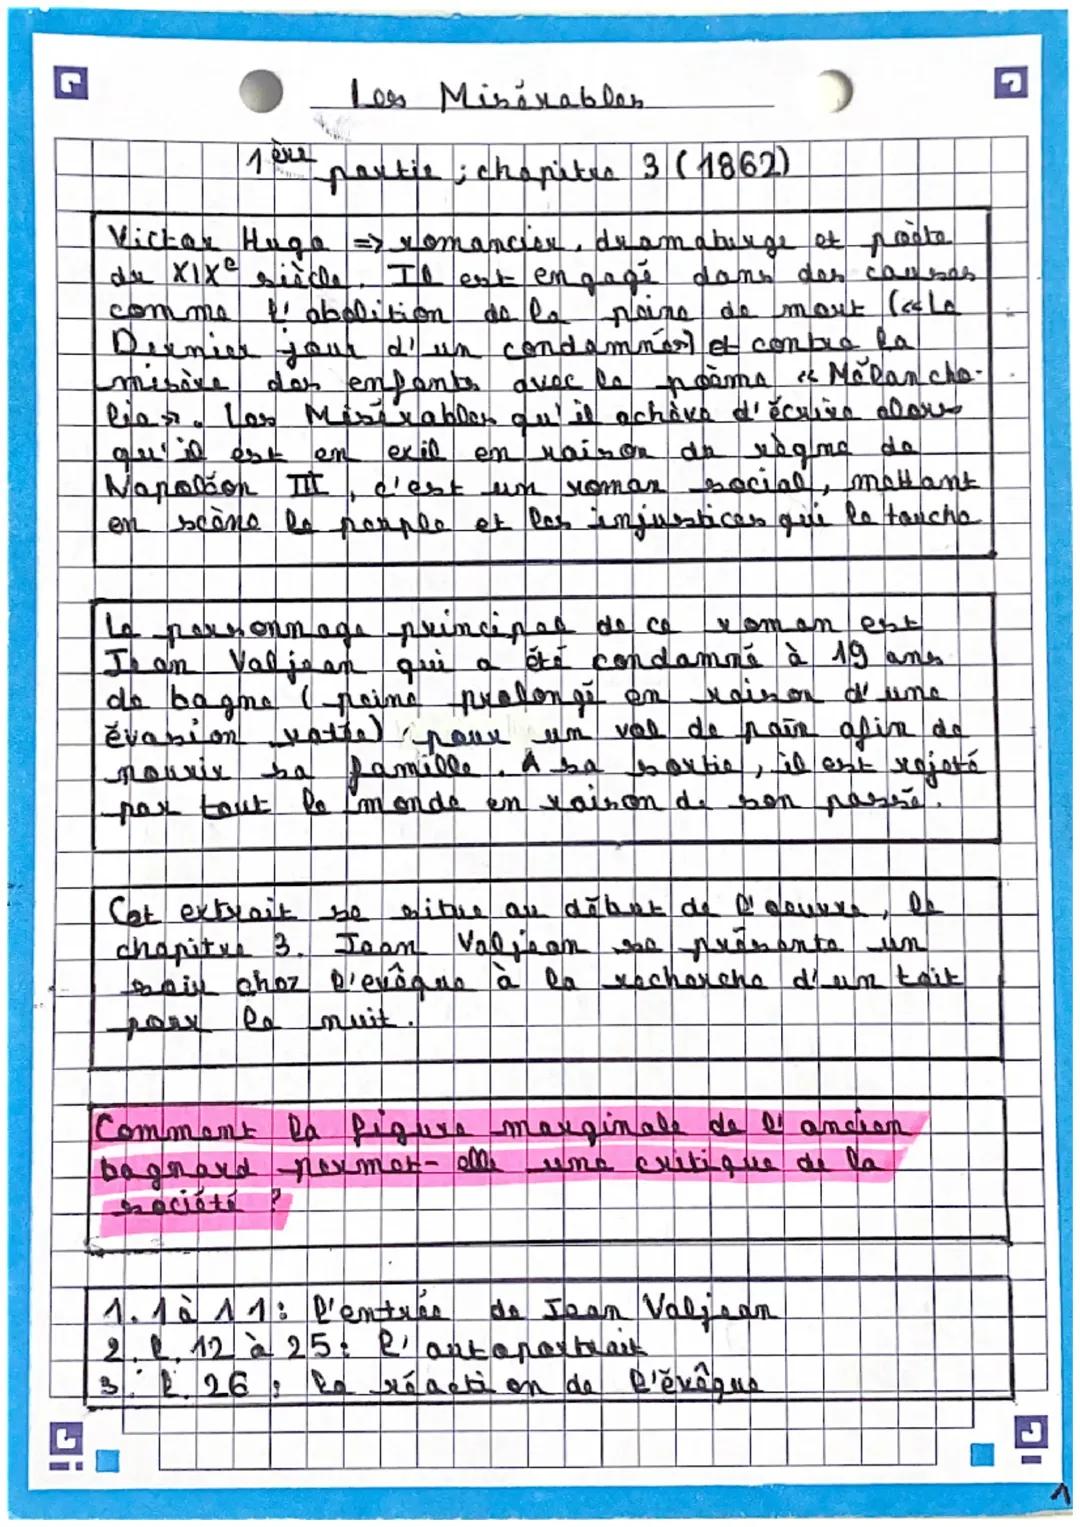 Les Misérables
1ère partie ; chapitre 3 (1862)
Victor Hugo => romancier, dramaturge et poète
du XIXe siècle. Il est engagé dans des causes
comme l'abolition de la peine de mort (« Le
Dernier jour d'un condamné») et contre la
misère des enfants avec le poème « Mélancho-
lia ». Les Misérables qu'il achève d'écrire alors
qu'il est en exil en raison du règme de
Napoléon III, c'est un roman social, mettant
en scène le peuple et les injustices qui le touche
Le personnage principal de ce roman est
Jean Valjean qui a été condamné à 19 ans
de bagne (peine prolongé en raison d'une
évasion ratée) pour un vol de pain afin de
nourir sa famille. A sa sortie, il est rejeté
par tout le monde en raison de son passé.
Cet extrait se situe au début de l'oeuvre, le
chapitre 3. Jean Valjean se présente un
soir chez l'evêque à la recherche d'un toit
pour la nuit.
Comment la figure marginale de l'ancien
bagnard permet-elle une critique de la
société ?
1. 1 à 11: l'entrée de Jean Valjean
2. l. 12 à 25: l'autoportrait
3. l. 26 : la réaction de l'évêque
1